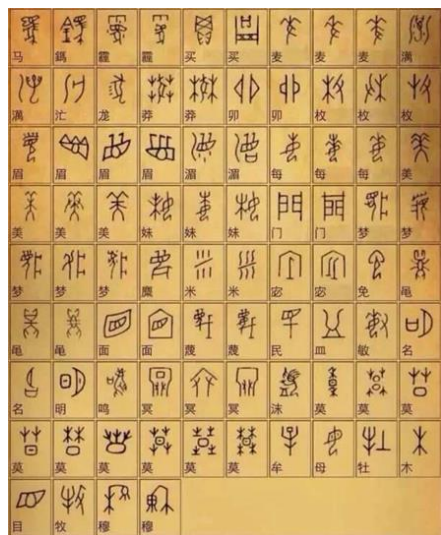 马 鎷 霾 霾 买 买 麦 麦 麦 满
满 汒 龙 莽 莽 卯 卯 枚 枚 枚
眉 眉 眉 眉 湄 湄 每 每 每 美
美 美 美 妹 妹 妹 门 门 梦 梦
梦 梦 梦 麋 米 米 宓 宓 免 黾
黾 黾 面 面 蔑 蔑 民 皿 敏 名
名 明 鸣 冥 冥 冥 沬 莫 莫 莫
莫 莫 莫 莫 莫 莫 牟 母 牡 木
目 牧 穆 穆